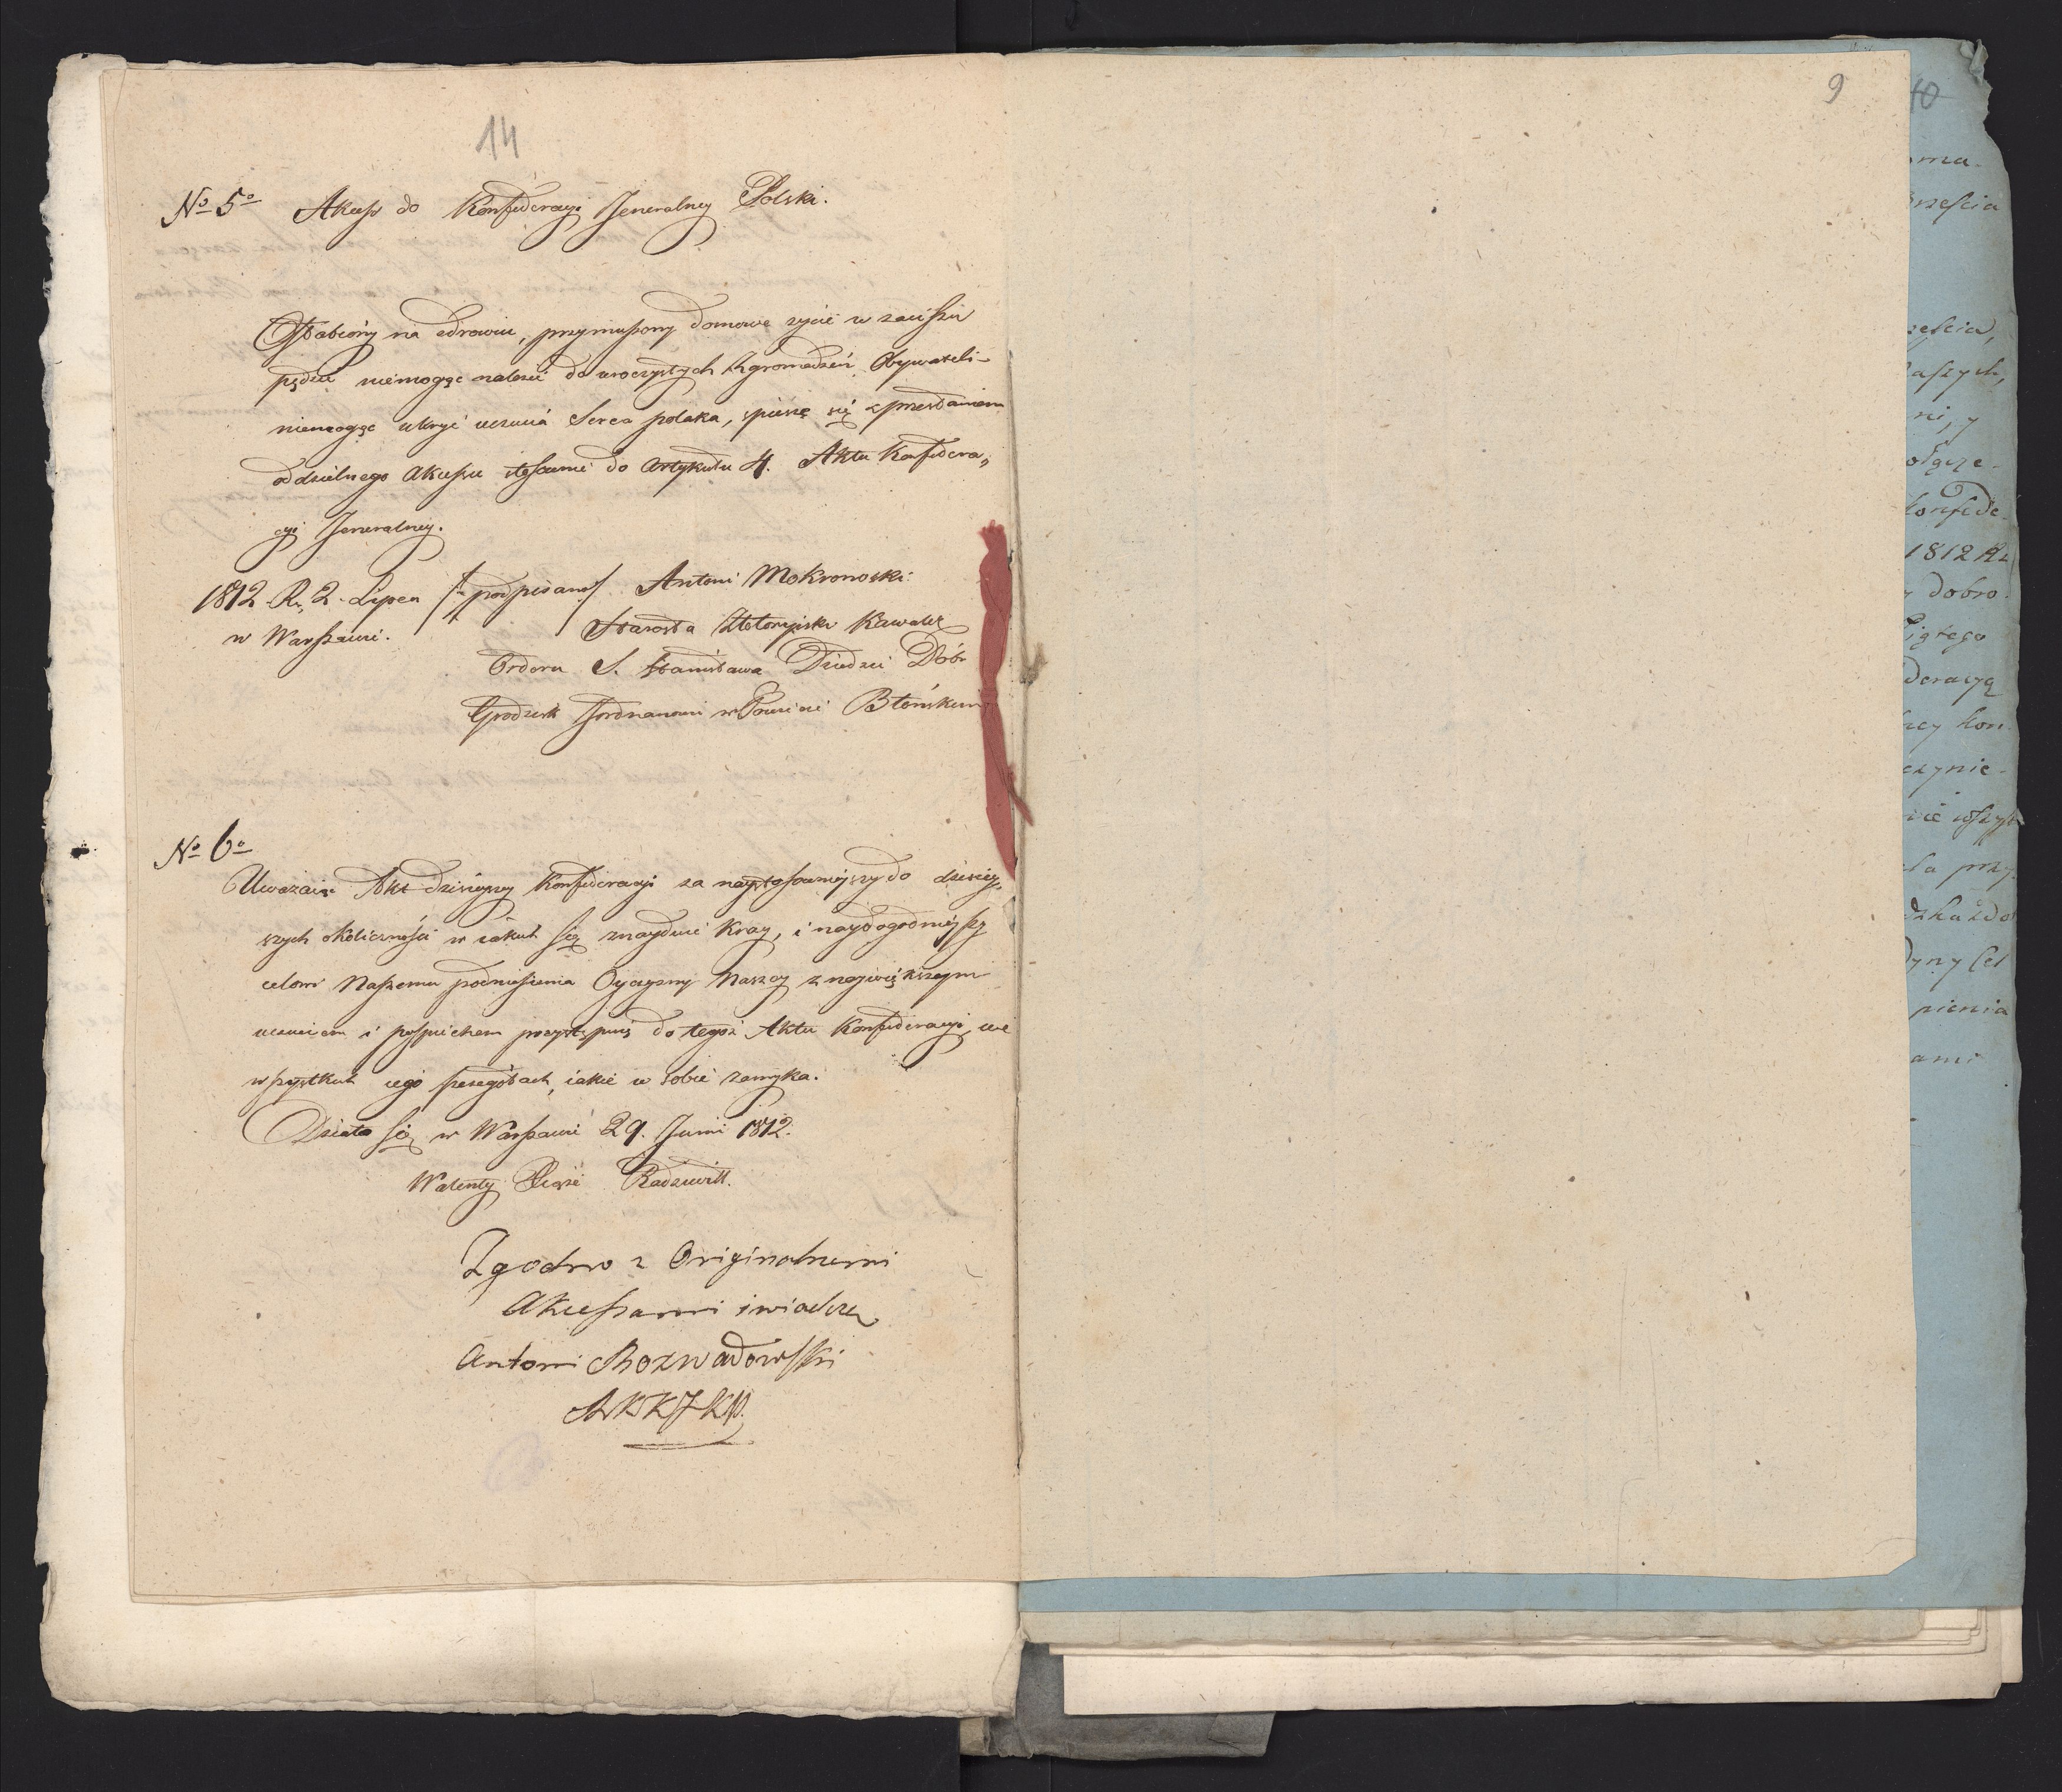 14
No 5o Akces do Konfederacyi Jeneralney Polski.
Osłabiony na zdrowiu, przymuszony domowe zycie w zaciszu
pędzić niemogąc należeć do uroczystych Zgromadzeń Obywateli
niemogąc ukryć uczucia Serca polaka, spieszę się z przesłaniem
oddzielnego Akcessu stosownie do Artykułu 4. Aktu Konfedera„
cyi Jeneralney.
1812. Ru 2. Lipca /: podpisano:/ Antoni Mokronoski
w Warszawie. Starosta Kawaler
Orderu S. Stanisława Dziedzic Dóbr
Grodzisk Jordanowic w Powiecie Błońskim
No 6o
Uważaiąc Akt dzisieyszy Konfederacyi za naystosownieyszy do dzisiey„
szych okoliczności w iakich się znayduie Kray, i naydogodnieyszy
celowi Naszemu podniesienia Oyczyzny Naszey z naywiększym
uczuciem i pospiechem przystępuię do tegoż Aktu Konfederacyi, we
wszystkich iego szczegółach, iakie w sobie zamyka.
Działo się w Warszawie 29. Juni 1812.
Walenty Xiąże Radziwiłł.
Zgodno z Originalnemi
Akcessami świadczę
Antoni Rozwadowski
9
10
rzescia
zescia,
aszych,
ni, y
ołącze-
Konfede-
1812 Ru
y dobro-
iętego
deracyą
ney kon-
czynie-
ła przy-
dyny Cel
pienia
ami